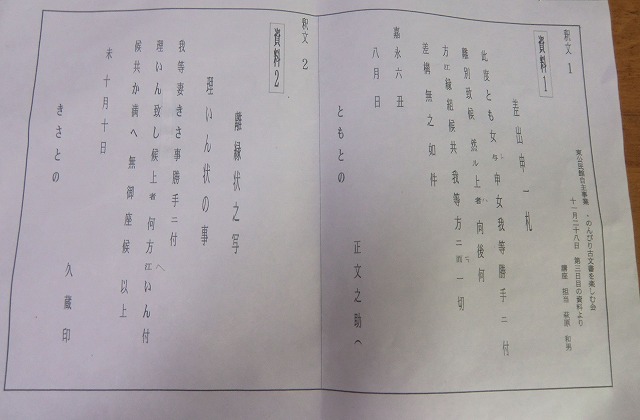 釈文1
東公民館自主事業 ・のんびり古文書を楽しむ会
十一月二十八日 第三日目の資料より
講座 担当 萩原 和男
資料1
差出申一札
此度とも女与申女我等勝手ニ付
離別致候 然ル上者 向後何
方江縁組候共 我等方ニ而一切
差構無之如件
嘉永六丑
八月日
正文之助
ともとの
釈文2
資料2
離縁状之写
理いん状の事
我等妻きさ事勝手ニ付
理いん致し候上者 何方江いん付
へ
候共か満へ無御座候 以上
未 十月十日
久蔵印
きさとの